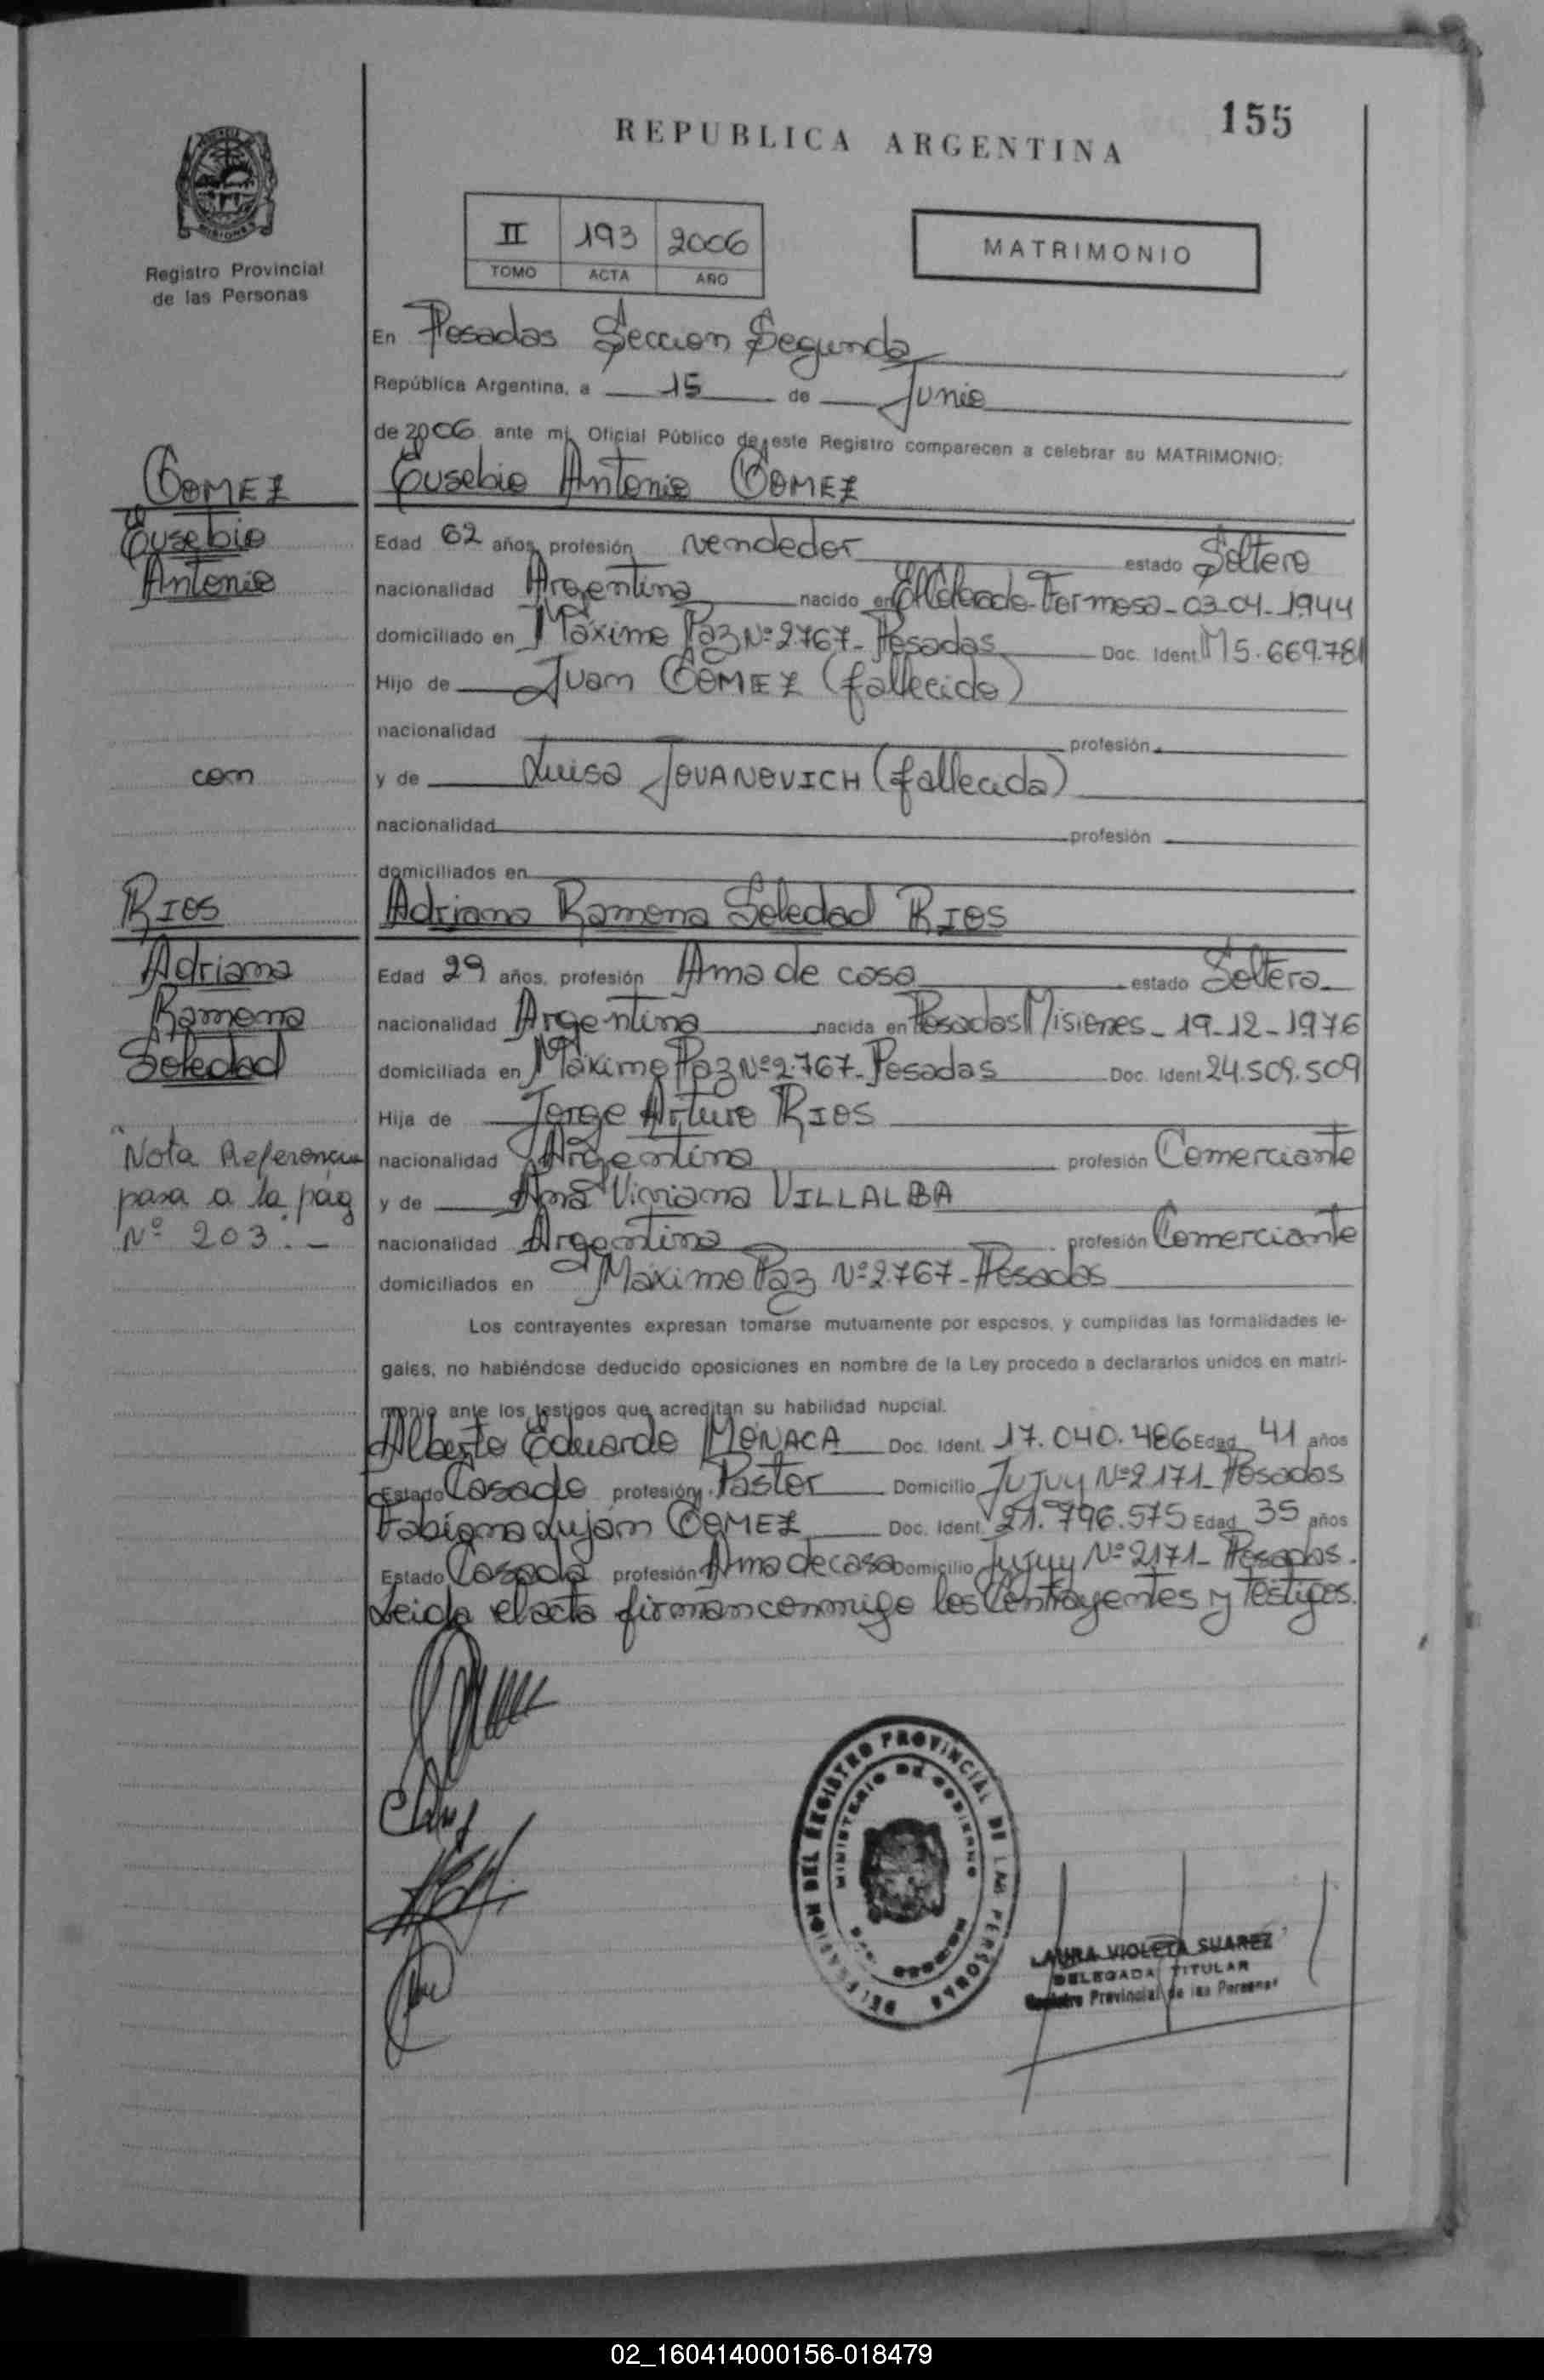 155
REPUBLICA ARGENTINA
MISIONES
Registro Provincial
de las Personas
II 193 2006
TOMO ACTA AÑO
MATRIMONIO
En Posadas Seccion Segunda
República Argentina, a 15 de Junio
de 2006 ante mí, Oficial Público de este Registro comparecen a celebrar su MATRIMONIO:
GOMEZ
Eusebio Antonio GOMEZ
Eusebio
Edad 62 años, profesión vendedor estado Soltero
Antonio
nacionalidad Argentina nacido en El Colorado-Formosa-03-04-1944
domiciliado en Máximo Paz Nº 2.767-Posadas Doc. Ident M5.669.781
Hijo de Juan GOMEZ (fallecido)
nacionalidad profesión
con
y de Luisa JOVANOVICH (fallecida)
nacionalidad profesión
domiciliados en
RIOS
Adriana Ramona Soledad RIOS
Adriana
Edad 29 años, profesión Ama de casa estado Soltera
Ramona
nacionalidad Argentina nacida en Posadas Misiones-19-12-1976
Soledad
domiciliada en Máximo Paz Nº 2.767-Posadas Doc. Ident 24.509.509
Hija de Jorge Arturo RIOS
Nota Referencia
nacionalidad Argentina profesión Comerciante
pasa a la pág
y de Ana Viviana VILLALBA
Nº 203.-
nacionalidad Argentina profesión Comerciante
domiciliados en Máximo Paz Nº 2.767-Posadas
Los contrayentes expresan tomarse mutuamente por esposos, y cumplidas las formalidades le-
gales, no habiéndose deducido oposiciones en nombre de la Ley procedo a declararlos unidos en matri-
monio ante los testigos que acreditan su habilidad nupcial.
Alberto Eduardo MONACA Doc. Ident. 17.040.486 Edad 41 años
Estado Casado profesión Pastor Domicilio Jujuy Nº 2171-Posadas
Fabiana Luján GOMEZ Doc. Ident. 21.796.575 Edad 35 años
Estado Casada profesión Ama de casa Domicilio Jujuy Nº 2171-Posadas.
Leida el acta firman conmigo los Contrayentes y Testigos.
DELEGACION DEL REGISTRO PROVINCIAL DE LAS PERSONAS
MINISTERIO DE GOBIERNO
LAURA VIOLETA SUAREZ
DELEGADA TITULAR
Registro Provincial de las Personas
02_160414000156-018479